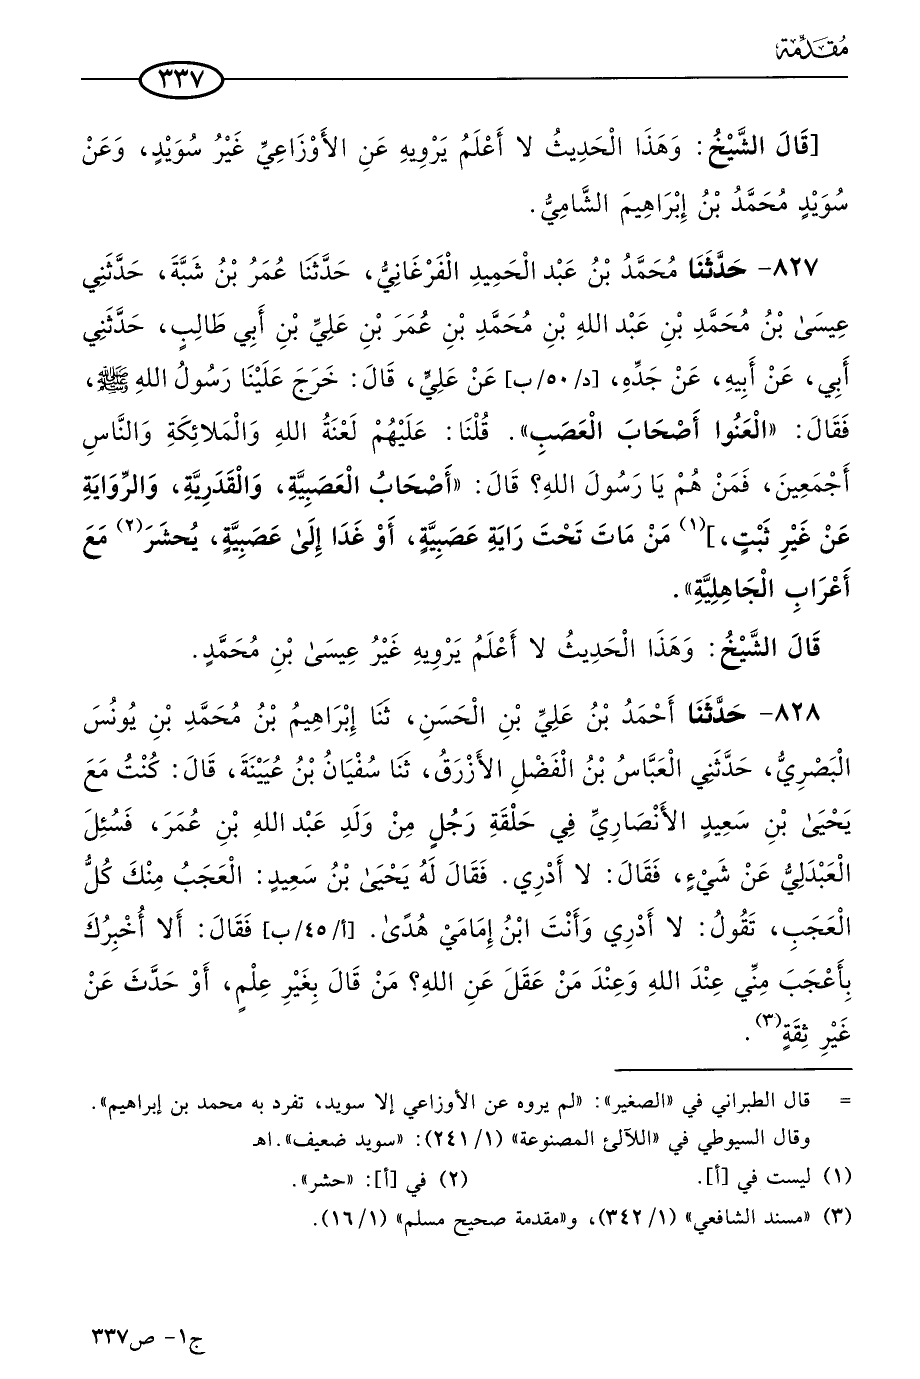 مُقَدِّمَة
٣٣٧
[قَالَ الشَّيْخُ: وَهَذَا الْحَدِيثُ لا أَعْلَمُ يَرْوِيهِ عَنِ الأَوْزَاعِيِّ غَيْرُ سُوَيْدٍ، وَعَنْ
سُوَيْدٍ مُحَمَّدُ بْنُ إِبْرَاهِيمَ الشَّامِيُّ.
٨٢٧- حَدَّثَنَا مُحَمَّدُ بْنُ عَبْد الْحَمِيدِ الْفَرْغَانِيُّ، حَدَّثَنَا عُمَرُ بْنُ شَبَّةَ، حَدَّثَنِي
عِيسَىٰ بْنُ مُحَمَّدِ بْنِ عَبْد اللهِ بْنِ مُحَمَّدِ بْنِ عُمَرَ بْنِ عَلِيِّ بْنِ أَبِي طَالِبٍ، حَدَّثَنِي
أَبِي، عَنْ أَبِيهِ، عَنْ جَدِّهِ، [د/٥٠/ب] عَنْ عَلِيٍّ، قَالَ: خَرَجَ عَلَيْنَا رَسُولُ اللهِ ﷺ،
فَقَالَ: «الْعَنُوا أَصْحَابَ الْعَصَبِ». قُلْنَا: عَلَيْهِمْ لَعْنَةُ اللهِ وَالْمَلائِكَةِ وَالنَّاسِ
أَجْمَعِينَ، فَمَنْ هُمْ يَا رَسُولَ اللهِ؟ قَالَ: «أَصْحَابُ الْعَصَبِيَّةِ، وَالْقَدَرِيَّةِ، وَالرِّوَايَةِ
عَنْ غَيْرِ ثَبْتٍ،](١) مَنْ مَاتَ تَحْتَ رَايَةِ عَصَبِيَّةٍ، أَوْ غَدَا إِلَىٰ عَصَبِيَّةٍ، يُحشَرَ(٢) مَعَ
أَعْرَابِ الْجَاهِلِيَّةِ».
قَالَ الشَّيْخُ: وَهَذَا الْحَدِيثُ لا أَعْلَمُ يَرْوِيهِ غَيْرُ عِيسَىٰ بْنِ مُحَمَّدٍ.
٨٢٨- حَدَّثَنَا أَحْمَدُ بْنُ عَلِيِّ بْنِ الْحَسَنِ، ثَنَا إِبْرَاهِيمُ بْنُ مُحَمَّدِ بْنِ يُونُسَ
الْبَصْرِيُّ، حَدَّثَنِي الْعَبَّاسُ بْنُ الْفَضْلِ الأَزْرَقُ، ثَنَا سُفْيَانُ بْنُ عُيَيْنَةَ، قَالَ: كُنْتُ مَعَ
يَحْيَىٰ بْنِ سَعِيدٍ الأَنْصَارِيِّ فِي حَلْقَةِ رَجُلٍ مِنْ وَلَدِ عَبْد اللهِ بْنِ عُمَرَ، فَسُئِلَ
الْعَبْدَلِيُّ عَنْ شَيْءٍ، فَقَالَ: لا أَدْرِي. فَقَالَ لَهُ يَحْيَىٰ بْنُ سَعِيدٍ: الْعَجَبُ مِنْكَ كُلُّ
الْعَجَبِ، تَقُولُ: لا أَدْرِي وَأَنْتَ ابْنُ إِمَامَيْ هُدًىٰ. [أ/٤٥/ب] فَقَالَ: أَلا أُخْبِرُكَ
بِأَعْجَبَ مِنِّي عِنْدَ اللهِ وَعِنْدَ مَنْ عَقَلَ عَنِ اللهِ؟ مَنْ قَالَ بِغَيْرِ عِلْمٍ، أَوْ حَدَّثَ عَنْ
غَيْرِ ثِقَةٍ(٣).
= قال الطبراني في «الصغير»: «لم يروه عن الأوزاعي إلا سويد، تفرد به محمد بن إبراهيم».
وقال السيوطي في «اللآلئ المصنوعة» (٢٤١/١): «سويد ضعيف».اهـ
(١) ليست في [أ]. (٢) في [أ]: «حشر».
(٣) «مسند الشافعي» (٣٤٢/١)، و«مقدمة صحيح مسلم» (١٦/١).
ج١- ص٣٣٧